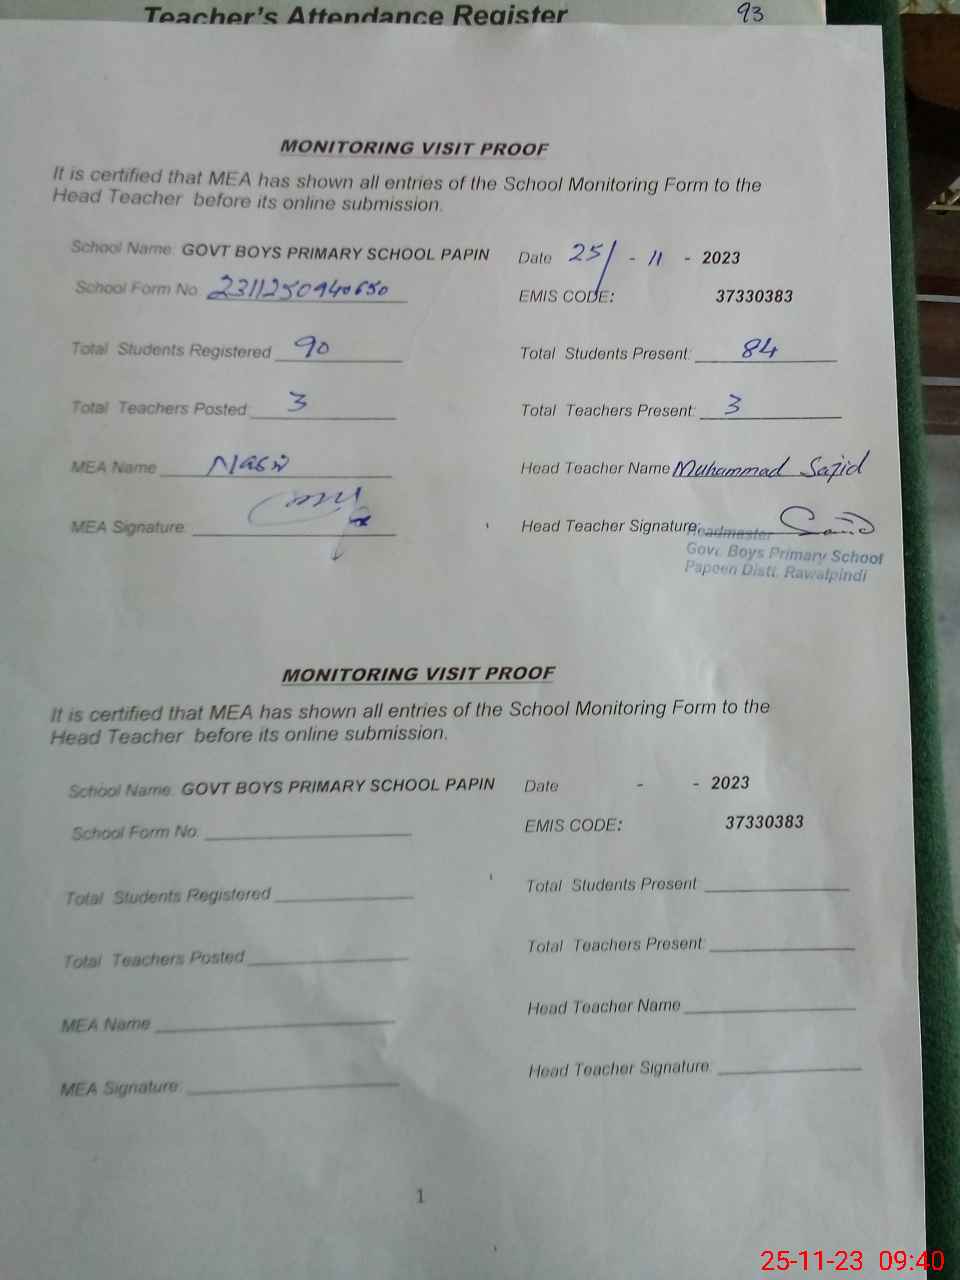 Teacher's Attendance Register
93
MONITORING VISIT PROOF
It is certified that MEA has shown all entries of the School Monitoring Form to the
Head Teacher before its online submission.
School Name: GOVT BOYS PRIMARY SCHOOL PAPIN Date 25/ - 11 - 2023
School Form No. 2311250940650 EMIS CODE: 37330383
Total Students Registered 90 Total Students Present: 84
Total Teachers Posted: 3 Total Teachers Present: 3
MEA Name Nasir Head Teacher Name Muhammad Sajid
MEA Signature: Head Teacher Signature: Sajid
Headmaster
Govt. Boys Primary School
Papeen Distt. Rawalpindi
MONITORING VISIT PROOF
It is certified that MEA has shown all entries of the School Monitoring Form to the
Head Teacher before its online submission.
School Name: GOVT BOYS PRIMARY SCHOOL PAPIN Date - - 2023
School Form No. EMIS CODE: 37330383
Total Students Registered Total Students Present:
Total Teachers Posted Total Teachers Present:
MEA Name Head Teacher Name
MEA Signature: Head Teacher Signature:
1
25-11-23 09:40